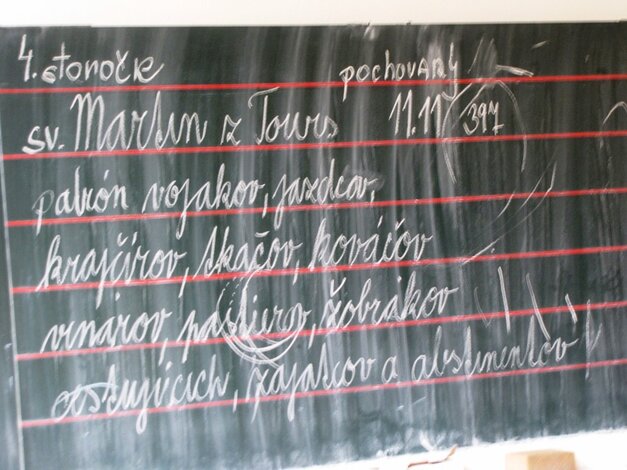 4. storočie pochovaný
sv. Martin z Tours 11.11 397
patrón vojakov, jazdcov,
krajčírov, tkačov, kováčov
vinárov, pastierov, žobrákov
cestujúcich, zajatcov a abstinentov!